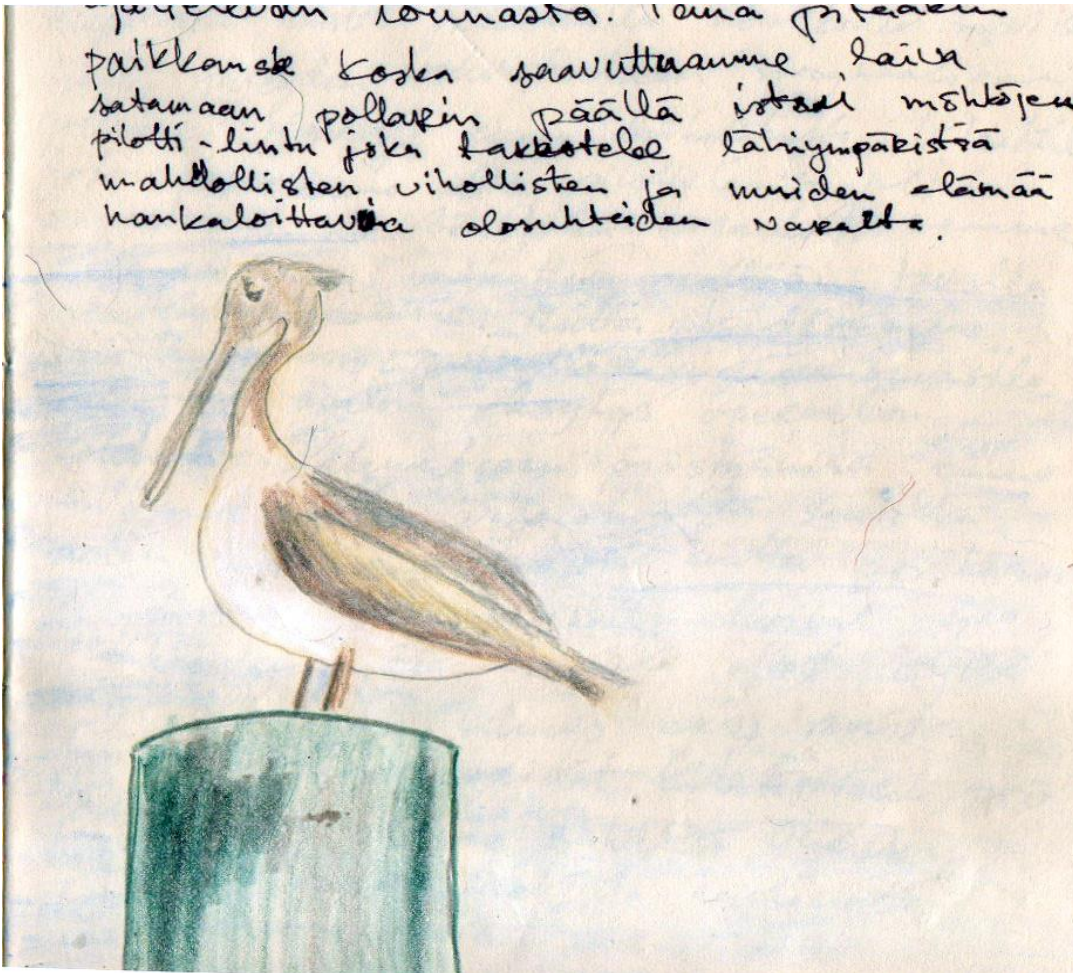 lounasta. Tämä pitääkin
paikkansa koska saavuttuamme laiva
satamaan pollarin päällä istui möhköjen
pilotti-lintu joka tarkastelee lähiympäristöä
mahdollisten vihollisten ja muiden elämää
hankaloittavia olosuhteiden varalta.